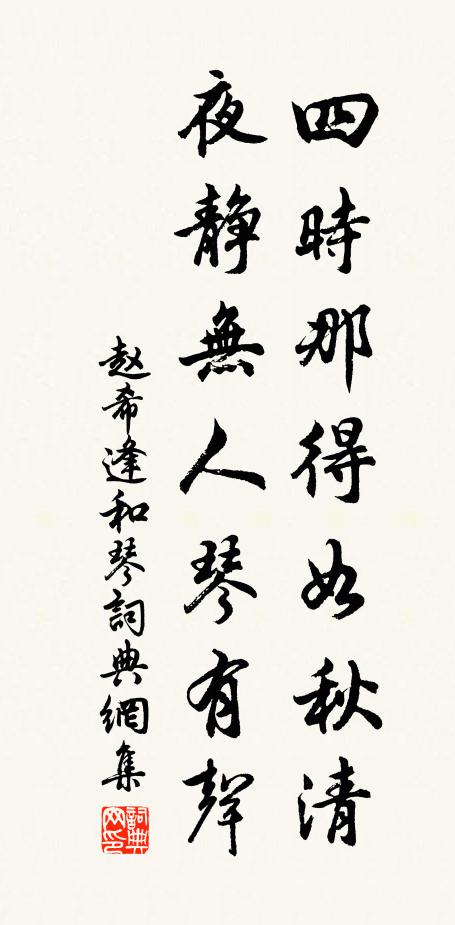 四時那得如秋清
夜靜無人琴有聲
赵希逢和琴詞典網集
詞典網印